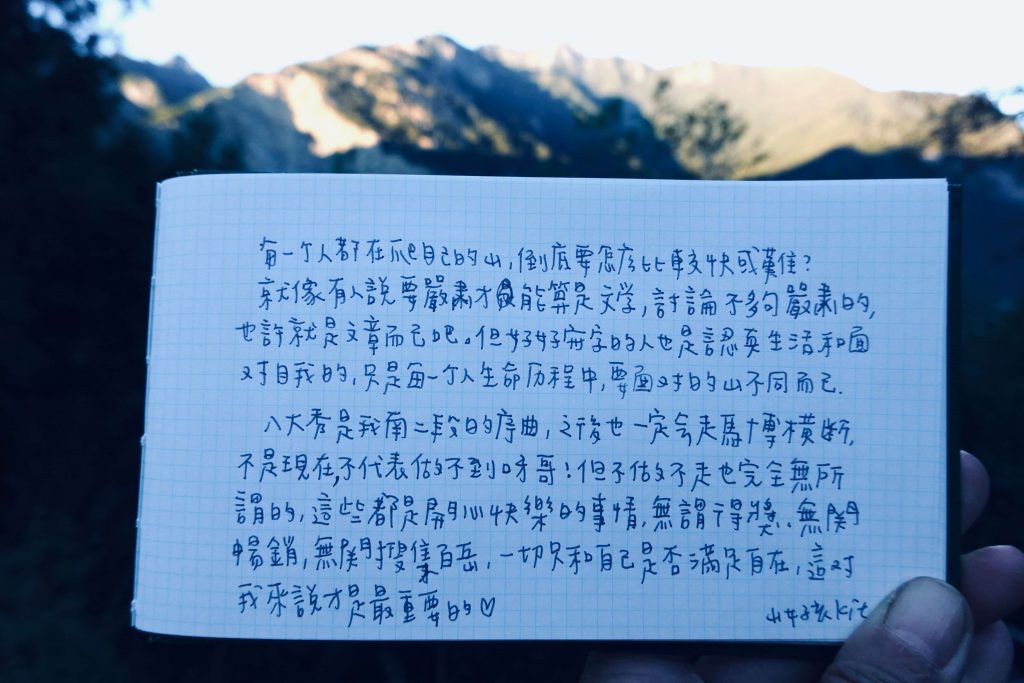 每一个人都在爬自己的山,倒底要怎么比較快或難?
就像有人說要嚴肅才能算是文学,討論不多夠嚴肅的,
也許就是文章而已吧。但好好寫字的人也是認真生活和面
对自我的,只是每一个人生命历程中,要面对的山不同而已.
八大秀是我南二段的序曲,之後也一定会走馬博橫断,
不是現在,不代表做不到呀哥!但不做不走也完全無所
謂的,這些都是開心快樂的事情,無謂得獎、無関
暢銷,無関搜集百岳,一切只和自己是否滿足自在,這对
我來說才是最重要的♡
山女孩kit